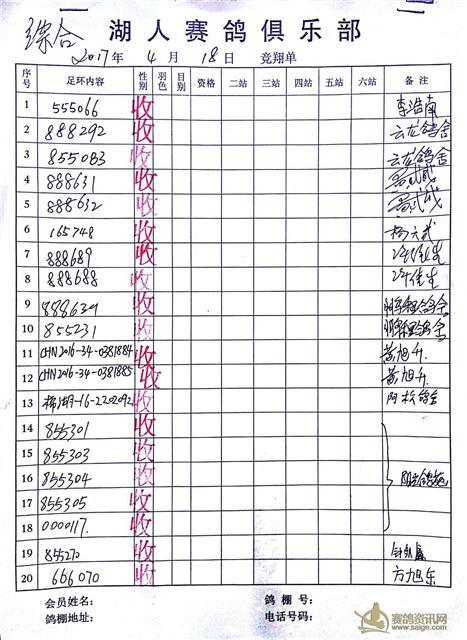 综合
湖人赛鸽俱乐部
2017年 4月 18日 竞翔单
序号 足环内容 性别 羽色 目别 资格 二站 三站 四站 五站 六站 备注
1 555066 收 李浩南
2 888292 收 云龙鸽舍
3 855083 收 云龙鸽舍
4 888631 收
5 888632 收
6 165748 收 杨文武
7 888689 收
8 888688 收
9 888639 收
10 855231 收
11 CHN2016-34-0381884 收 黄旭升.
12 CHN2016-34-0381885 收 黄旭升.
13 棉湖-16-2202092 收 阿松鸽舍
14 855301 收
15 855303 收
16 855304 收
17 855305 收
18 0000117. 收
19 855270 收
20 666070 收 方旭东
会员姓名: 鸽棚号:
鸽棚地址: 电话号码:
赛鸽资讯网
www.saige.com